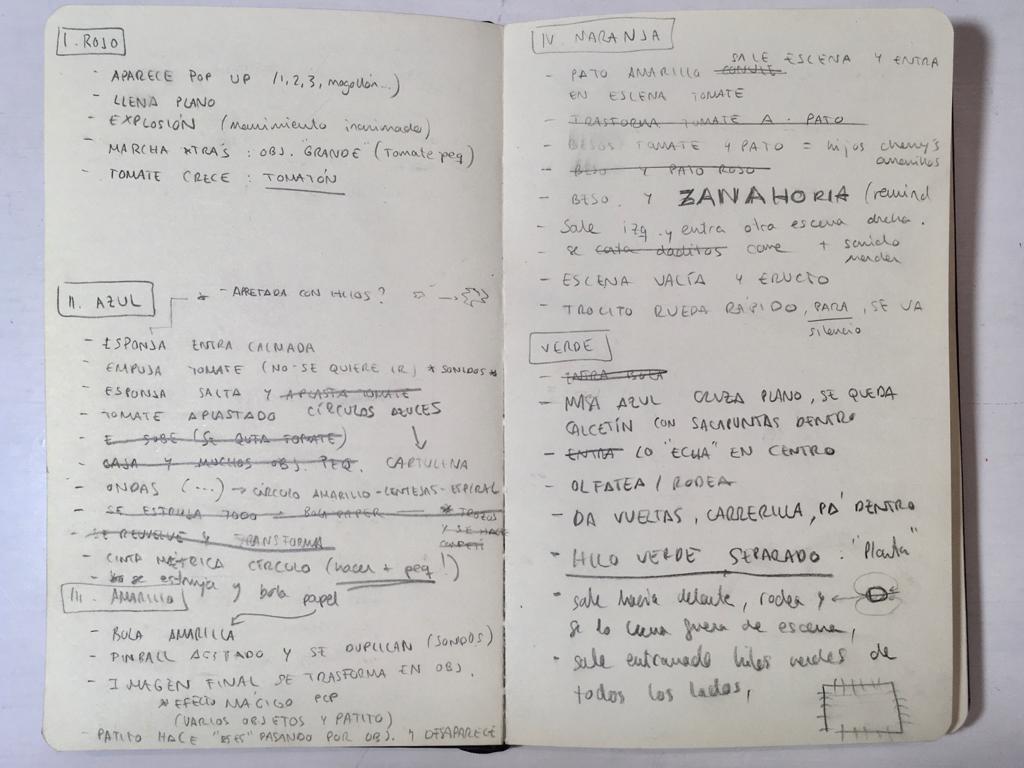 I. ROJO
- APARECE POP UP (1, 2, 3, mogollón...)
- LLENA PLANO
- EXPLOSIÓN (movimiento inanimado)
- MARCHA ATRÁS : OBJ. "GRANDE" (Tomate peq)
- TOMATE CRECE : TOMATÓN
II. AZUL
* - APRETADA CON HILOS?
- ESPONJA ENTRA CALMADA
- EMPUJA TOMATE (NO SE QUIERE IR) * SONIDOS *
- ESPONJA SALTA Y APLASTA TOMATE
- TOMATE APLASTADO CÍRCULOS AZULES
- E SUBE (SE QUITA TOMATE)
- CAJA Y MUCHOS OBJ. PEQ. CARTULINA
- ONDAS (...) → CÍRCULO AMARILLO - LENTEJAS - ESPIRAL
- SE ESTRUJA TODO = BOLA PAPER * TROZOS
Y SE HACE
CONFETI
- SE REVUELVE Y TRANSFORMA
- CINTA MÉTRICA CÍRCULO (hacer + peq!)
- se estruja y bola papel
III. AMARILLO
- BOLA AMARILLA
- PINBALL AGITADO Y SE DUPLICAN (SONIDOS)
- IMAGEN FINAL SE TRASFORMA EN OBJ.
* EFECTO MÁGIGO POP
(VARIOS OBJETOS Y PATITO)
- PATITO HACE "ESES" PASANDO POR OBJ. Y DESAPARECE
IV. NARANJA
- PATO AMARILLO SALE ESCENA Y ENTRA
EN ESCENA TOMATE
- TRASFORMA TOMATE A PATO
- BESOS TOMATE Y PATO = hijos cherry's
amarillos
- BESO Y PATO ROJO
- BESO Y ZANAHORIA (remind
- Sale izq. y entra otra escena drcha.
- se corta daditos come + sonido
morder
- ESCENA VACÍA Y ERUCTO
- TROCITO RUEDA RÁPIDO, PARA, SE VA
silencio
VERDE
- ENTRA BOLA
- MASA AZUL CRUZA PLANO, SE QUEDA
CALCETÍN CON SACAPUNTAS DENTRO
- ENTRA LO "ECHA" EN CENTRO
- OLFATEA / RODEA
- DA VUELTAS, CARRERILLA, PA' DENTRO
- HILO VERDE SEPARADO : "Planta"
- sale hacia delante, rodea y
se lo lleva fuera de escena,
- sale entramado hilos verdes de
todos los lados,